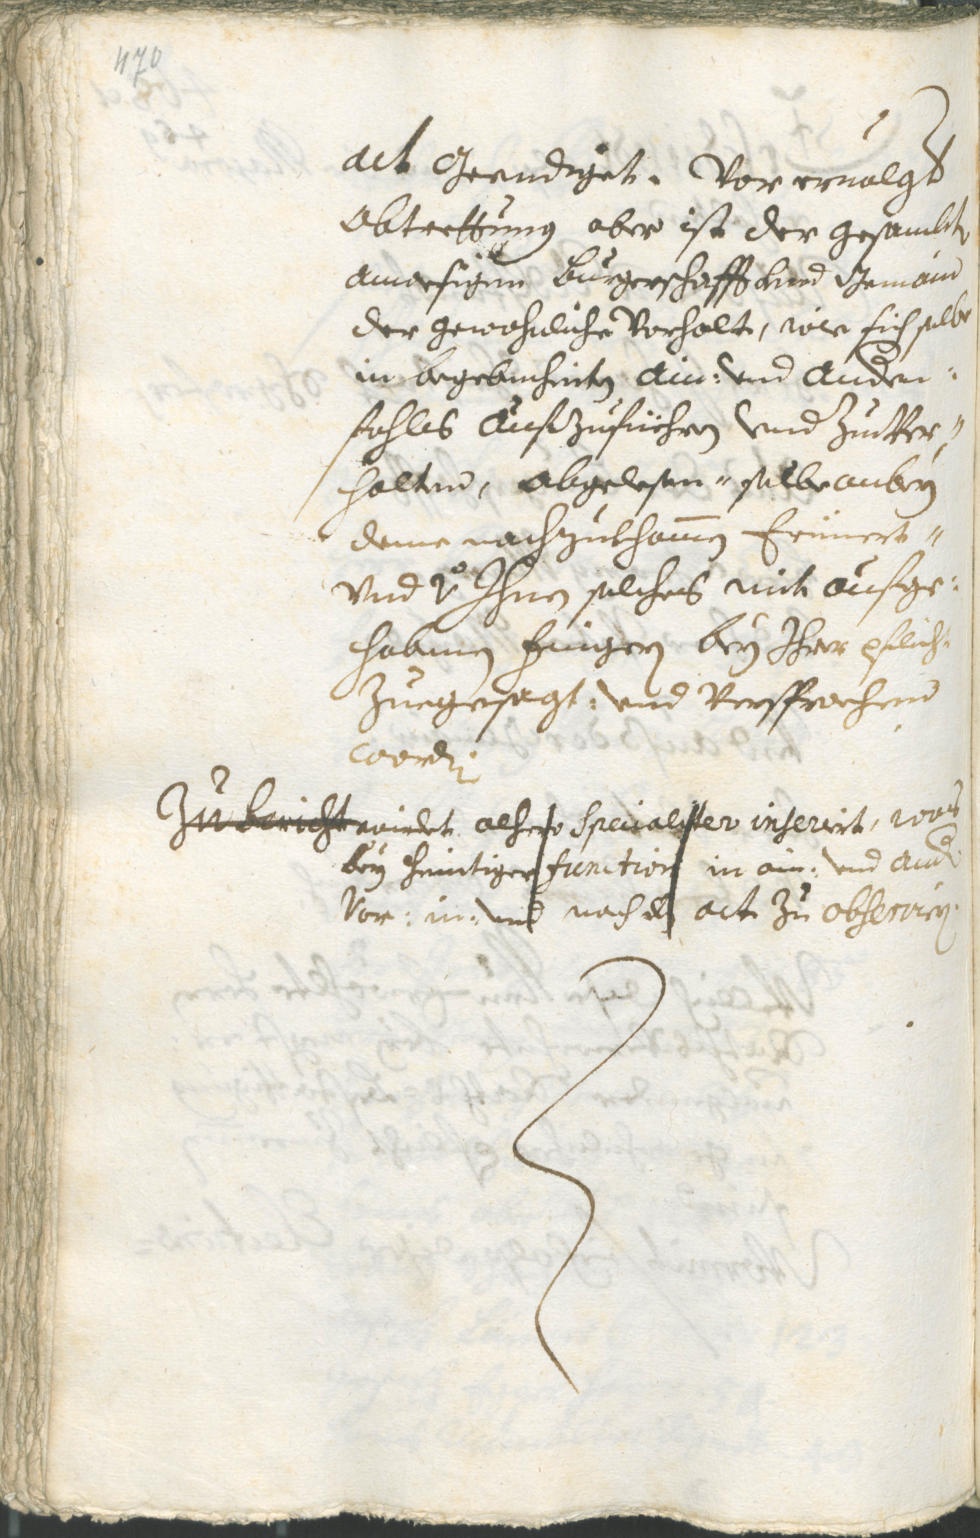 470
act Geendiget. Vor ervolgt
Abtrettung aber ist der gesambten
anwesigen Burgerschafft und Gemain
der gewohnliche Vorhalt, wie sich selbe
in begebenheiten Ain: und Anden
fahles Aufzufüehren und Zuver"
halten, abgelesen" selbe anbey
deme nachzukhommen Erinnert"
Und Ihnen solches mit aufge:
habenen Fingern bey Ihrer pflicht
Zuegesagt: und Versprochend
word:
Zu bericht wirdet alhero Specialiter inserirt, was
bey heuntiger function in ain: und and:
Vor: in: und nach dem act Zu observirn.